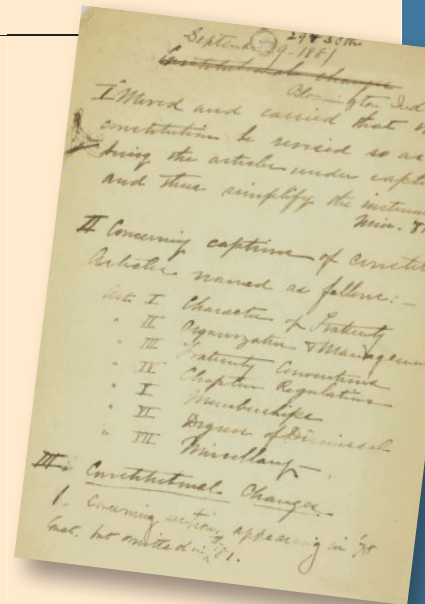 294 30th
September 29-1881
Constitutional Changes
Bloomington Ind
I Moved and carried that
constitution be revised so as
bring the articles under capti
and thus simplify the instrum
Min. 8
II Concerning captions of constit
Articles named as follows:-
Art. I Character of Fraternity
" II Organization & Managemen
" III Fraternity Conventions
" IV Chapter Regulations
" V Memberships
" VI Degree of Dismissal
" VII Miscellany
III. Constitutional Changes.
1. Concerning sections appearing in '78
Const. but omitted in '81.